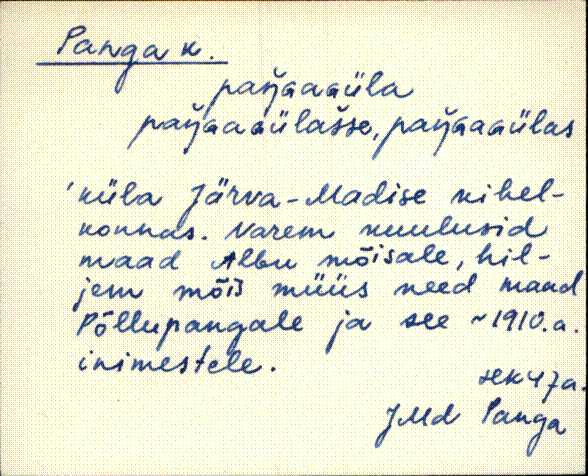 Panga k.
paŋ̆gaaüla
paŋ̆gaaülašse, paŋ̆gaaülas
'küla Järva-Madise kihel-
konnas. Varem kuulusid
maad Albu mõisale, hil-
jem mõis müüs need maad
Põllupangale ja see ~1910.a.
inimestele.
47a.
JMd Panga